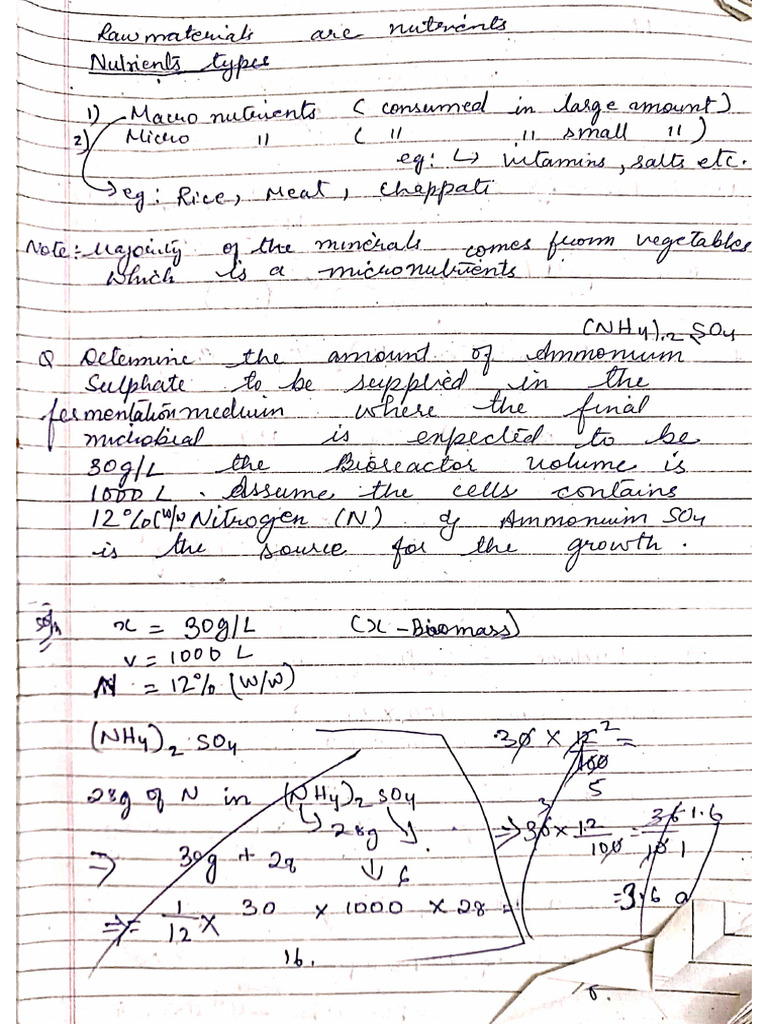 Raw materials are nutrients
Nutrients types
1) Macro nutrients ( consumed in large amount)
2) Micro " ( " " small " )
eg: ↳ vitamins, salts etc.
eg: Rice, Meat, Chappati
Note: Majority of the minerals comes from vegetables
which is a micronutrients
(NH4)2 SO4
Q Determine the amount of Ammonium
Sulphate to be supplied in the
fermentation medium where the final
microbial is expected to be
30g/L the Bioreactor volume is
1000 L. Assume the cells contains
12% (w/w) Nitrogen (N) & Ammonium SO4
is the source for the growth.
Soln x = 30g/L (x - Biomass)
v = 1000 L
N = 12% (w/w)
(NH4)2 SO4
30 × 12/100 =
2
5
28g of N in (NH4)2 SO4
↳ 28g
⇒ 30 × 12/100 =
3
= 3.6
⇒ 30g + 28
⇒ = 1/12 × 30 × 1000 × 28 =
16.